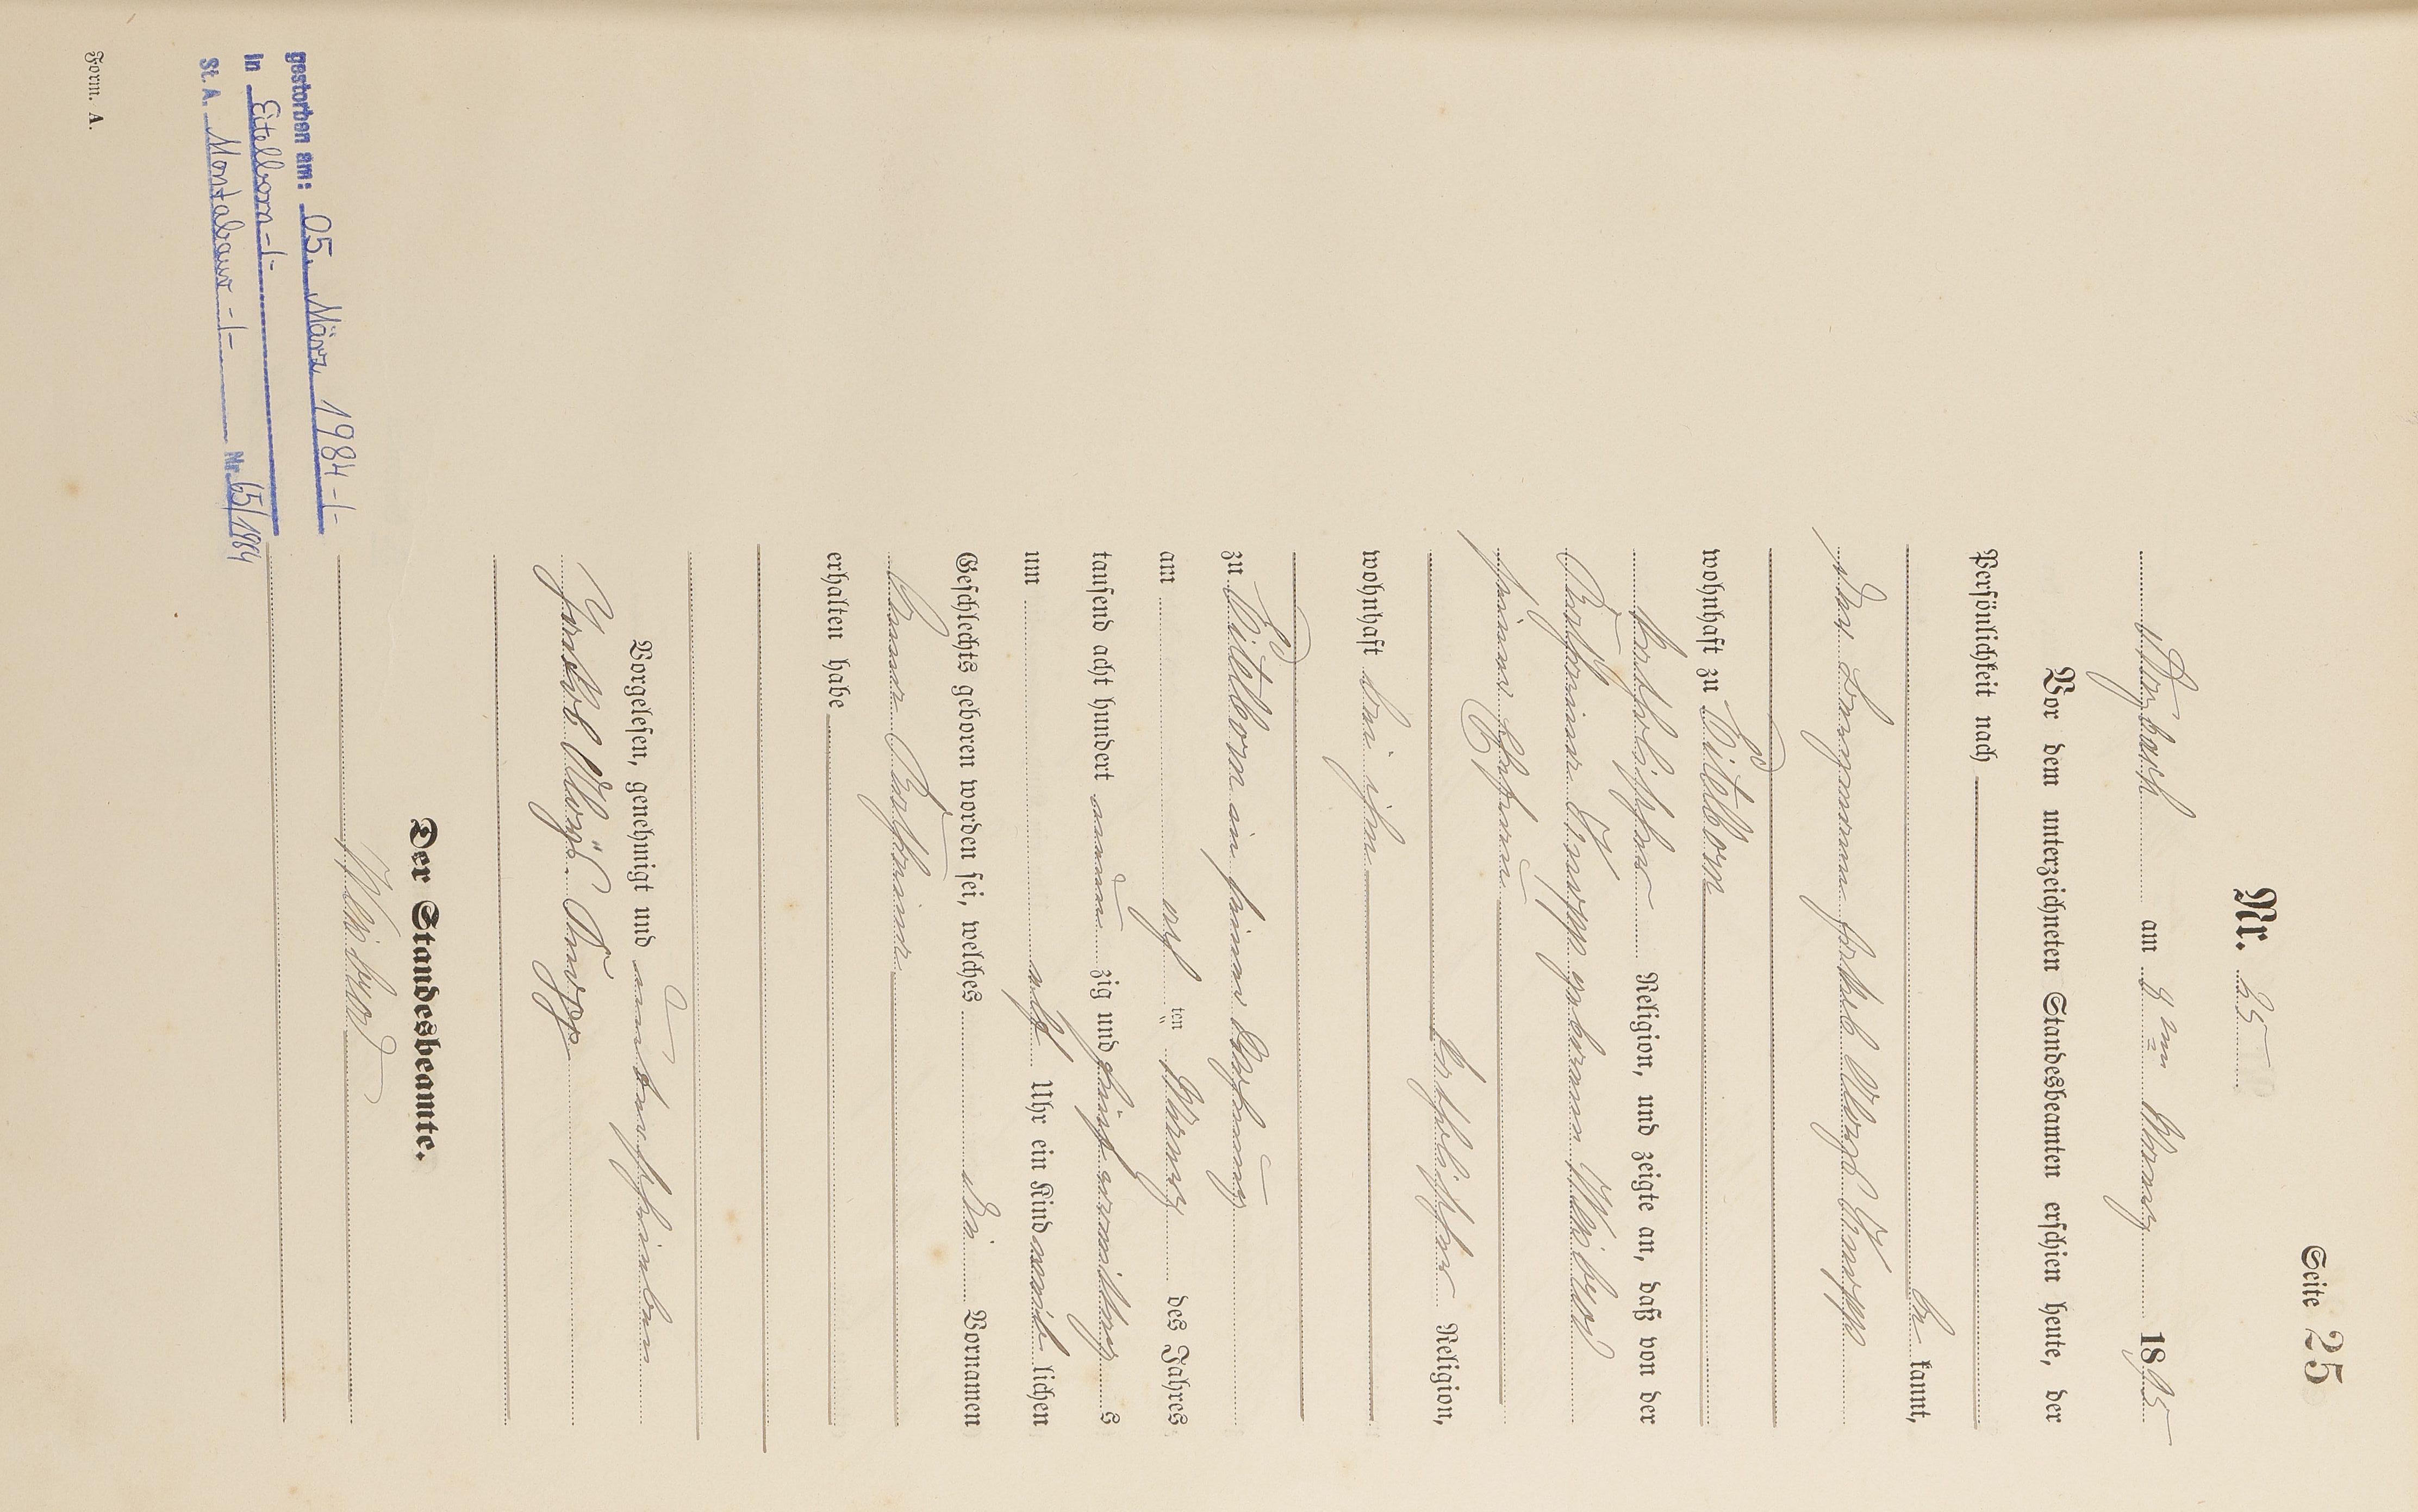 Seite 25
Nr. 25
Arzbach am 8ten Maerz 1895
Vor dem unterzeichneten Standesbeamten erschien heute, der
Persönlichkeit nach
be kannt,
der Bergmann Jakob Knopp
wohnhaft zu Eitelborn
katholischer Religion, und zeigte an, daß von der
Katharina Knopp geborenen Weisbrod
seiner Ehefrau
katholischer Religion,
wohnhaft bei ihm
zu Eitelborn in seiner Wohnung
am ten Maerz des Jahres
tausend acht hundert neun zig und fünf Vormittags
um Uhr ein Kind weib lichen
Geschlechts geboren worden sei, welches die Vornamen
Anna Katharina
erhalten habe
Vorgelesen, genehmigt und unterschrieben
Jakob Knopp
Der Standesbeamte.
Weisbrod
gestorben am: 05. März 1984-/-
in Eitelborn-/-
St. A. Montabaur -/- Nr. 65/1984
Form. A.